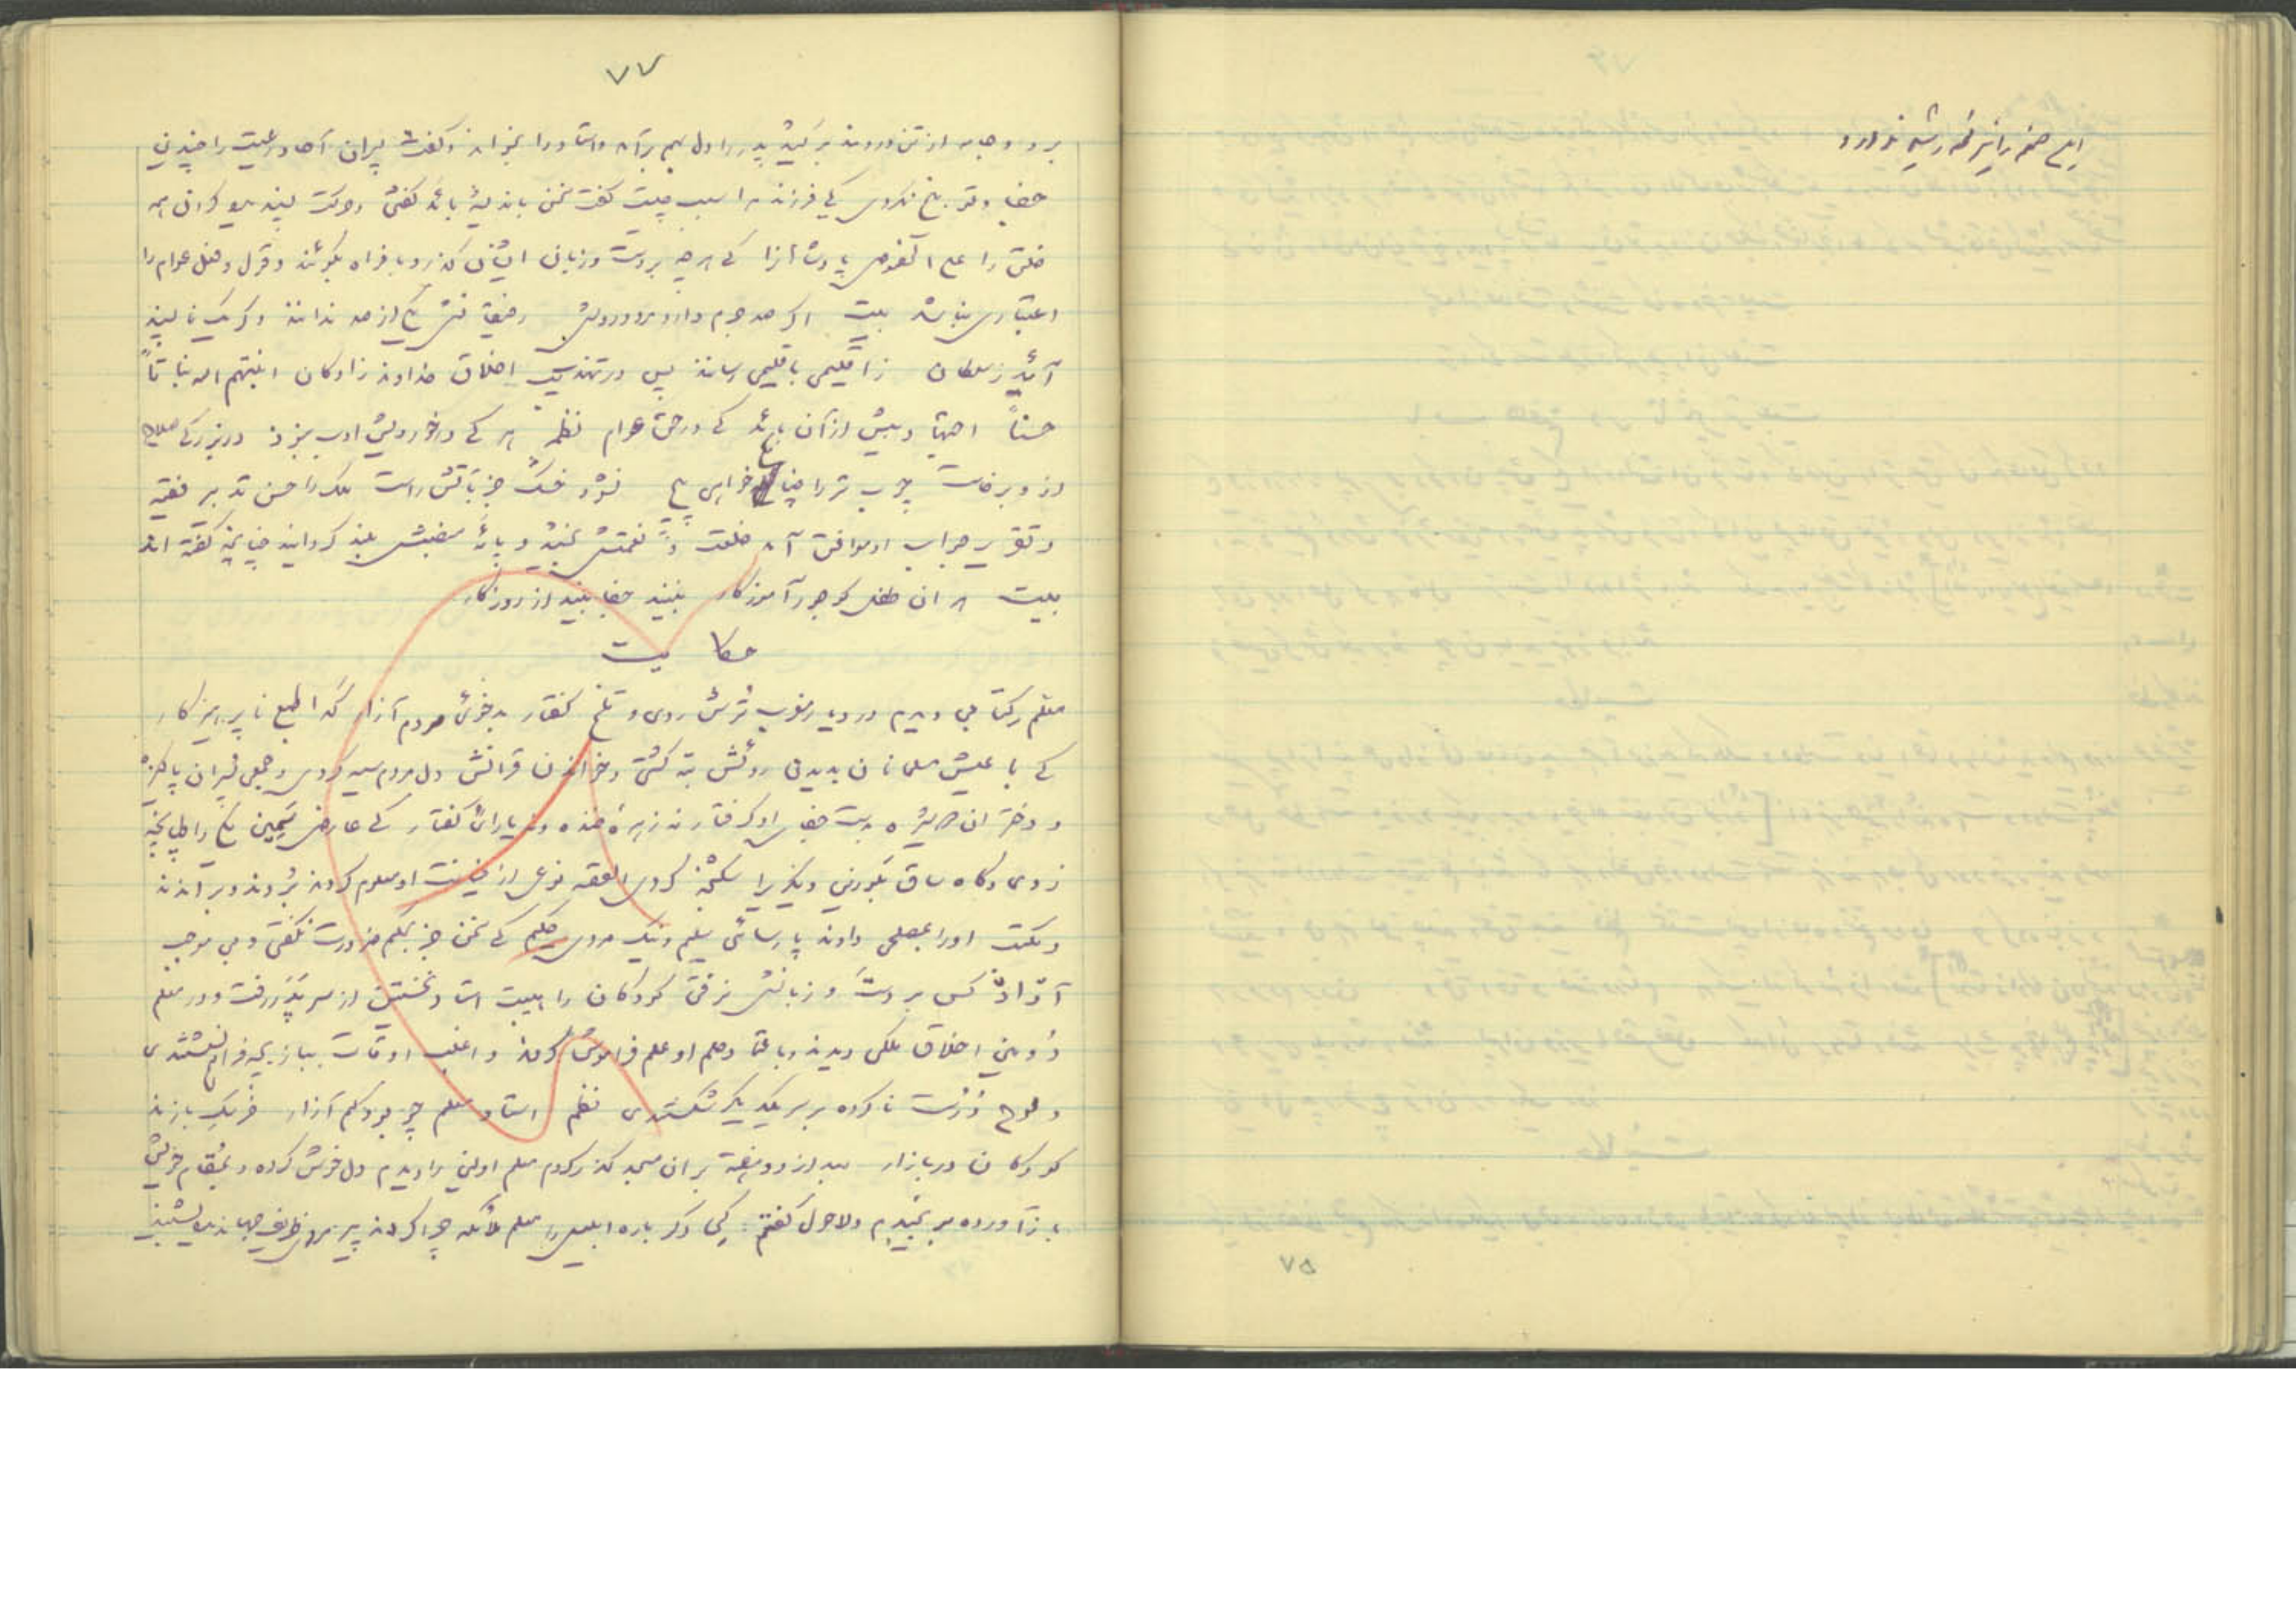 این صفحه را نیز فهرشیه ندارد
۷۷
برد و جامه از تن دردمند برکشید پدر را دل بهم برآمد و استاد را بخواند و گفت پسران آحاد رعیت را چندین
جفا و توبیخ نکردی کی فرزند مرا سبب چیست گفت سخن باندیشه بائد گفتن و حرکت پسندیده کردن همه
خلق را علی الخصوص پادشاهانرا کی هر چه بر دست و زبان ایشان گذرد بافواه بگوئند و قول و فعل عوام را
اعتباری نباشد بیت اگر صد جرم دارد مرد درویش رفیقانش یکی از صد ندانند وگر یک ناپسند
آئد ز سلطان ز اقلیمی باقلیمی رسانند پس در تهذیب اخلاق خداوند زادگان انبتهم الله نباتاً
حسناً اجتهاد بیش از آن بائد کی در حق عوام نظم هر کی در خوردیش ادب نبود در بزرگی صلاح
ازو برخاست چوب تر را چنانکه خواهی پیچ نشود خشک جز بآتش راست ملک را حسن تدبیر فقیه
و تقریر جواب او موافق آمد خلعت و نعمتش بخشید و پائه منصبش بلند گردانید چنانچه گفته اند
بیت هر ان طفل کو جور آموزگار نبیند جفا بیند از روزگار
حکایت
معلم کتابی دیدم در دیار مغرب ترش روی و تلخ گفتار بدخوئی مردم آزار گدا طبع ناپرهیزگار
کی با عیش مسلمانان بدیدن روئش تبه گشتی و خواندن قرانش دل مردم سیه کردی و جمعی پسران پاکیزه
و دختران دوشیزه بدست جفای او گرفتار نه زهره خنده و نه یارای گفتار کی عارض سیمین یکی را طپانچه
زدی و گاه ساق بلورین دیگریرا شکنجه کردی القصه نوعی از خیانت او معلوم کردند بزدند و براندند
و مکتب اورا بمصلحی دادند پارسائی سلیم و نیک مردی حلیم کی سخن جز بحکم ضرورت نگفتی و بی موجب
آزار کس بر دست و زبانش نرفتی کودکان را هیبت استاد نخستین از سر بدر رفت و در معلم
دومین اخلاق ملکی دیدند و باعتماد حلم او علم فراموش کردند و اغلب اوقات ببازیچه فراهم نشستندی
و لوح درست ناکرده بر سر یکدیگر شکستندی نظم استاد معلم چو بود کم آزار خرسک بازند
کودکان در بازار بعد از دو هفته بر ان مسجد گذر کردم معلم اولین را دیدم دل خوش کرده و بمقام خویش
باز آورده برنجیدم و لاحول گفتم : کی دگر باره ابلیس را معلم ملائکه چرا کردند پیر مردی ظریف جهاندیده بشنید
۷۵